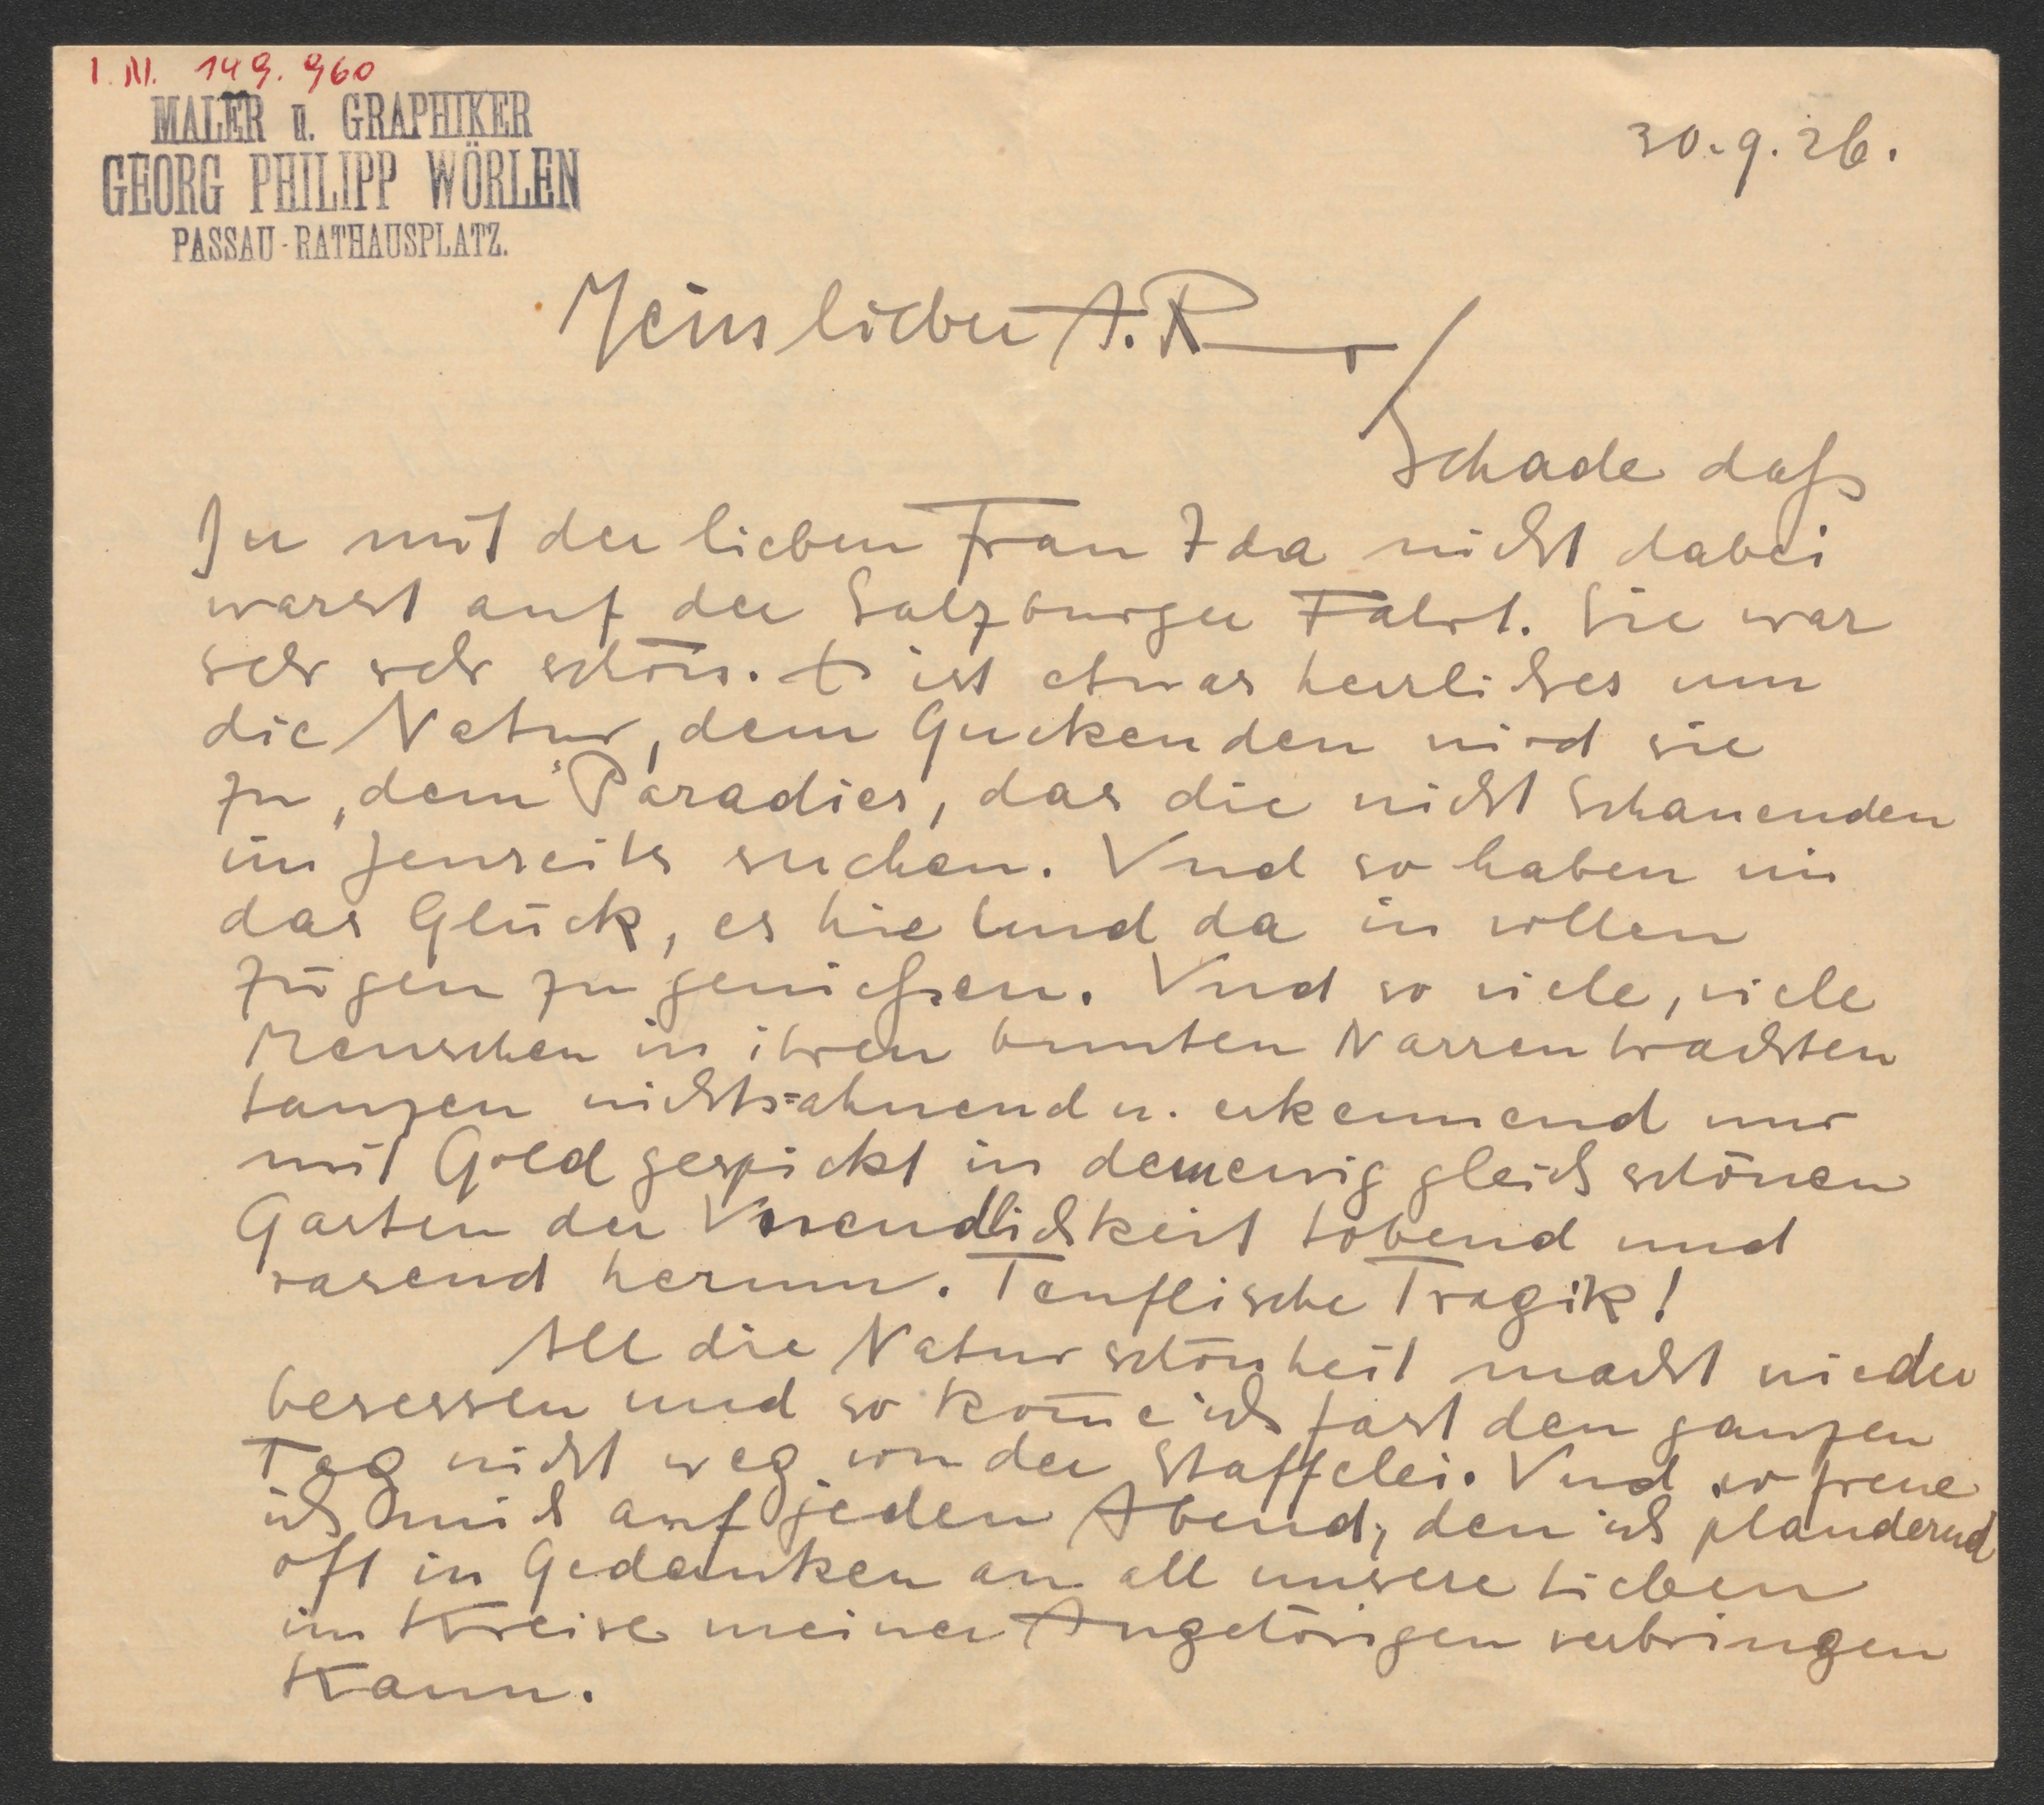 I. N. 149.960
MALER u. GRAPHIKER
GEORG PHILIPP WÖRLEN
PASSAU-RATHAUSPLATZ.
30.9.26.
Mein lieber A. R
Schade daß
Du mit der lieben Frau Ida nicht dabei
warst auf der Salzburger Fahrt. Sie war
sehr sehr schön. Es ist etwas herrliches um
die Natur, dem Guckenden wird sie
zu „dem“ Paradies, das die nicht Schauenden
im Jenseits suchen. Und so haben wir
das Glück, es hie und da in vollen
Zügen zu genießen. Und so viele, viele
Menschen in ihren bunten Narrentrachten
tanzen nichts=ahnend u. erkennend nur
mit Gold gespickt in dem ewig gleich schönen
Garten der Unendlichkeit tobend und
rasend herum. Teuflische Tragik!
All die Naturschönheit macht wieder
besessen und so kom̅e ich fast den ganzen
Tag nicht weg von der Staffelei. Und so freue
ich mich auf jeden Abend, den ich plaudernd
oft in Gedanken an all unsere Lieben
im Kreise meiner Angehörigen verbringen
kann.